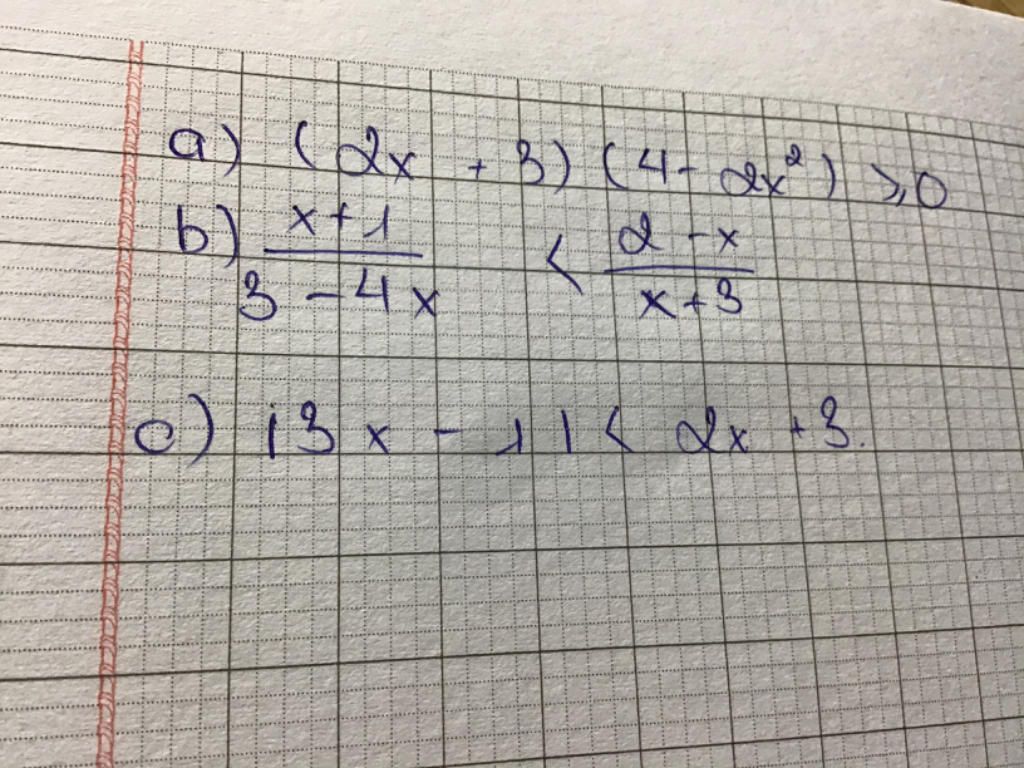 a) (2x + 3) (4 - 2x²) ⩾ 0
b) \frac{x+1}{3-4x} < \frac{2-x}{x+3}
c) |3x - 1| < 2x + 3.